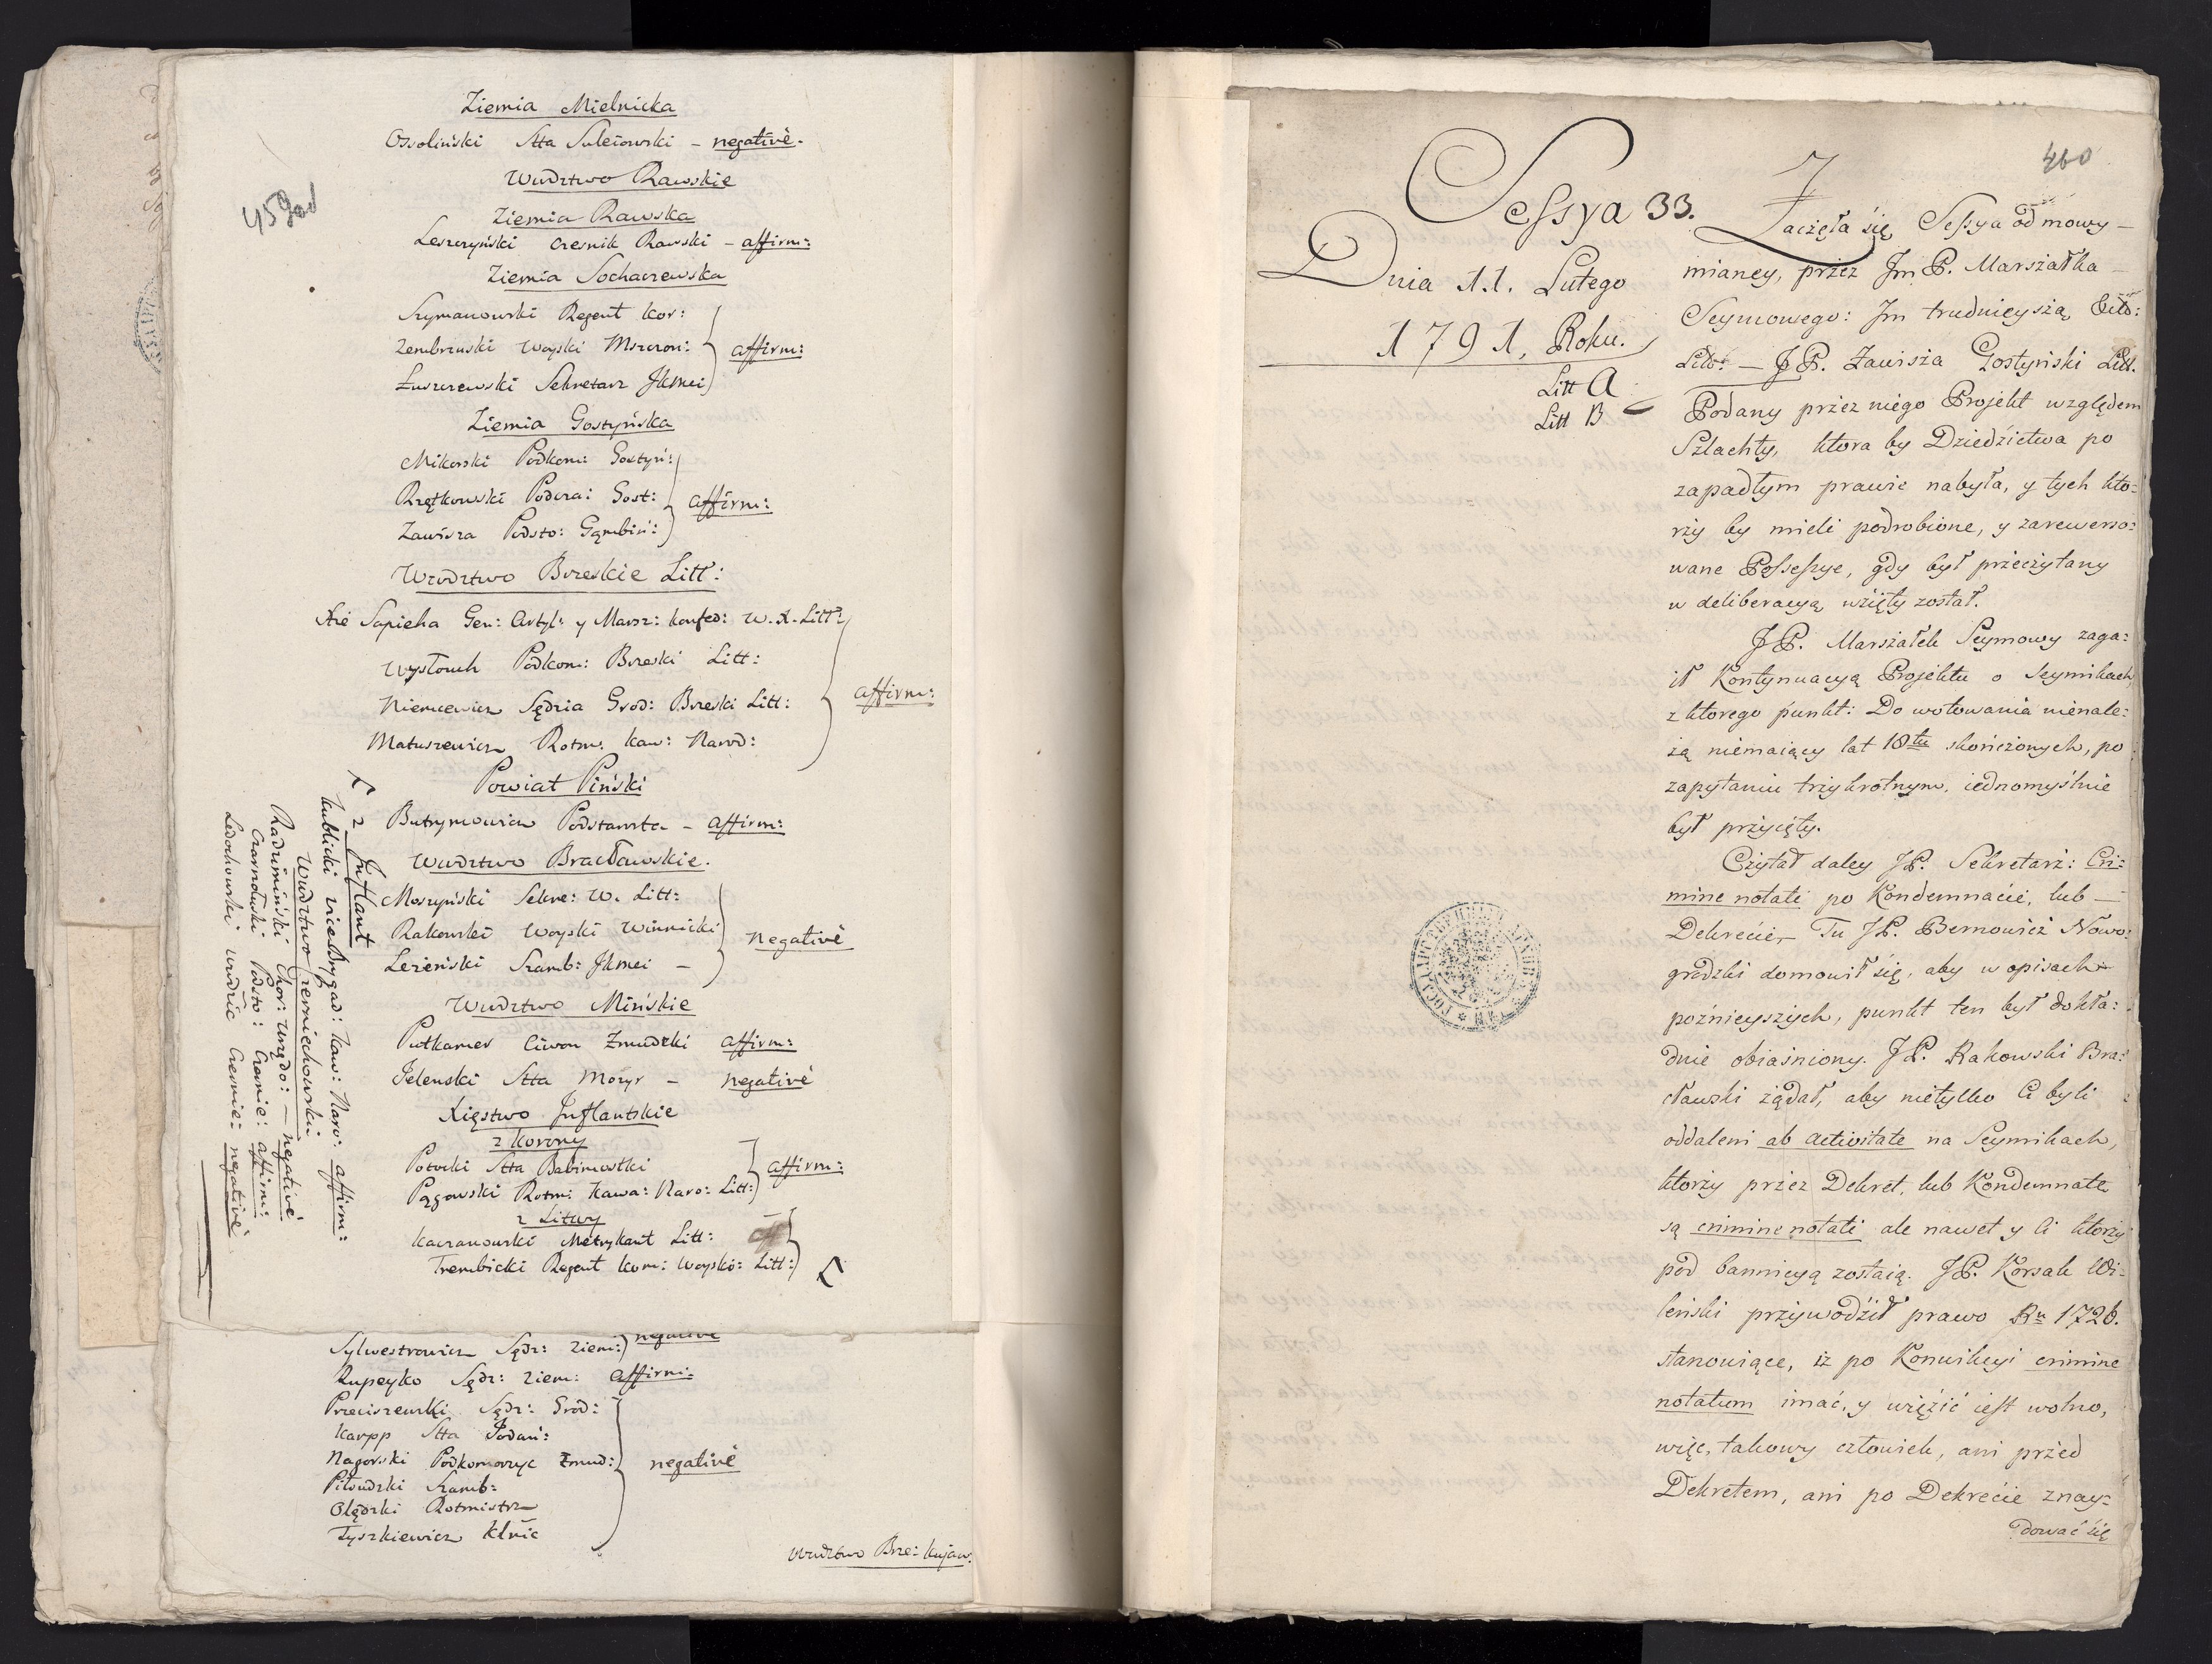 Ziemia Mielnicka
Ossoliński Stta Suleiowski – negativè.
Wudztwo Rawskie
Ziemia Rawska
Leszczyński Czesnik Rawski – affirm:
Ziemia Sochaczewska
Szymanowski Regent Kor:
Zembrzuski Woyski Mszczon: affirm:
Łuszczewski Sekretarz JKmci
Ziemia Gostyńska
Mikorski Podkom: Gostyń:
Rzętkowski Podcza: Gost: affirm:
Zawisza Podsto: Gąmbiń:
Wzodztwo Brzeskie Litt:
Xże Sapieha Gen: Artyl: y Marsz: Konfed: W. X. Litt:
Wysłouch Podkom: Brzeski Litt:
Niemcewicz Sędzia Grod: Brzeski Litt: affirm:
Matuszewicz Rotm: Kaw: Narod:
Powiat Piński
Butrymowicz Podstarsta – affirm:
Wudztwo Bracławskie.
Moszyński Sekre: W. Litt:
Rakowski Woyski Winnicki negativè
Leżeński Szamb: JKmci –
Wudztwo Mińskie
Putkamer Ciwon Zmudzki affirm:
Jelenski Stta Mozyr – negativè
Xięstwo Inflantskie
z Korony
Potocki Stta Babimostki
Pągowski Rotm: Kawa: Naro: Litt: affirm:
z Litwy
Kaczanowski Metrykant Litt:
Trembicki Regent Kom: Woysko: Litt:
z Inflant
Kublicki viceBrygad: Kaw: Naro: affirm:
Wudztwo Czerniechowskie
Radzimiński Chor: Urzędo: – negativè
Czarnołuski Podsto: Czernie: affirm:
Ledochowski Wwdzic Czernie: negativè
459od
Sylwestrowicz Sędz: Ziem: negativè
Rupeyko Sędz: Ziem: affirm:
Przeciszewski Sędz: Grod:
Karpp Stta
Nagorski Podkomorzyc Zmud: negativè
Piłsudzki Szamb:
Olędzki Rotmistrz
Tyszkiewicz
Wudztwo Brze: Kujaw:
460
Sessya 33.
Dnia 11. Lutego
1791, Roku.
Litt A
Litt B
Zaczęła się Sessya od mowy –
mianey, przez Jm P. Marszałka –
Seymowego: Jm trudnieyszą,
Litt: – JP. Zawisza Gostyński Litt.
Podany przez niego Projekt względem
Szlachty, ktora by Dziedzictwa po
zapadłym prawie nabyła, y tych kto:
rzy by mieli podrobione, y zarewerso:
wane Possessye, gdy był przeczytany
w deliberacyą wzięty został.
JP. Marszałek Seymowy zaga:
ił Kontynuacyą Projektu o Seymikach
z ktorego punkt: Do wotowania nienale:
żą niemaiący lat 18tu skończonych, po
zapytaniu trzykrotnym, iednomyślnie
był przyięty.
Czytał daley JP. Sekretarz: Cri:
mine notati po Kondemnacie, lub –
Dekrecie, – Tu JP. Bernowicz Nowo:
grodzki domowił się, aby w opisach
poźnieyszych, punkt ten był dokła:
dnie obiaśniony. JP. Rakowski Bra:
cławski żądał, aby nietylko Ci byli
oddaleni ab activitate na Seymikach,
ktorzy przez Dekret, lub Kondemnatę
są crimine notati ale nawet y Ci ktorzy
pod bannicyą zostaią. JP. Korsak Wi:
leński przywodził prawo Ru 1726.
stanowiące, iż po Konwikcyi crimine
notatum imać, y więzić iest wolno,
więc, takowy człowiek, ani przed
Dekretem, ani po Dekrecie znay:
dować się